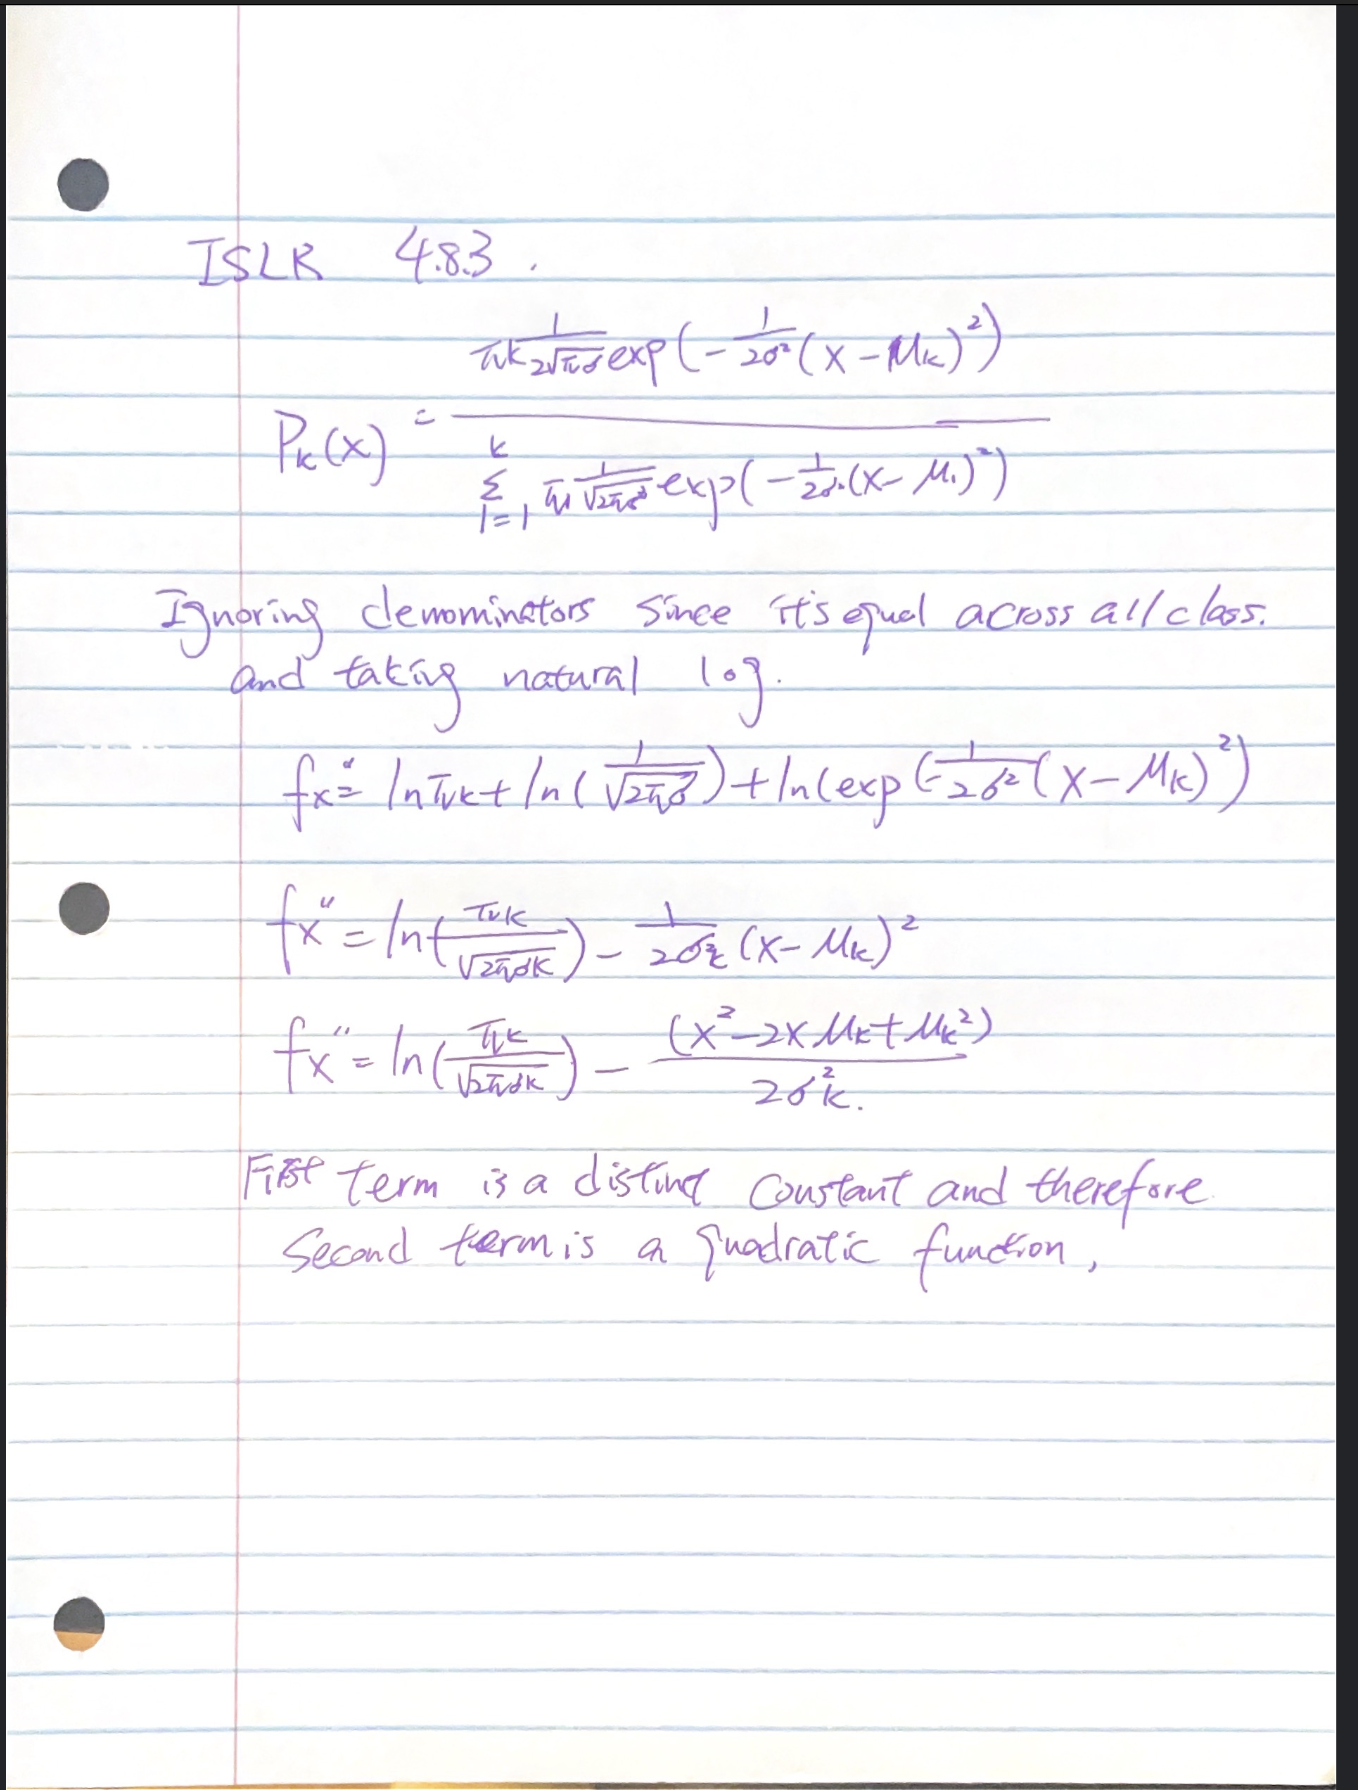 ISLR 4.8.3.
πk 1/(2√πσ) exp(-1/2σ² (x-μk)²)
Pk(x) = ―――――
k Σ l=1 πl 1/√2πσ² exp(-1/2σ² (x-μl)²)
Ignoring denominators since it's equal across all class.
and taking natural log.
fx" = lnπk + ln(1/√2πσ) + ln(exp(-1/2σ² (x-μk)²)
fx" = ln(πk/√2πσk) - 1/2σ²k (x-μk)²
fx" = ln(πk/√2πσk) - (x²-2xμk+μk²)/2σ²k.
First term is a distinct constant and therefore
second term is a quadratic function,